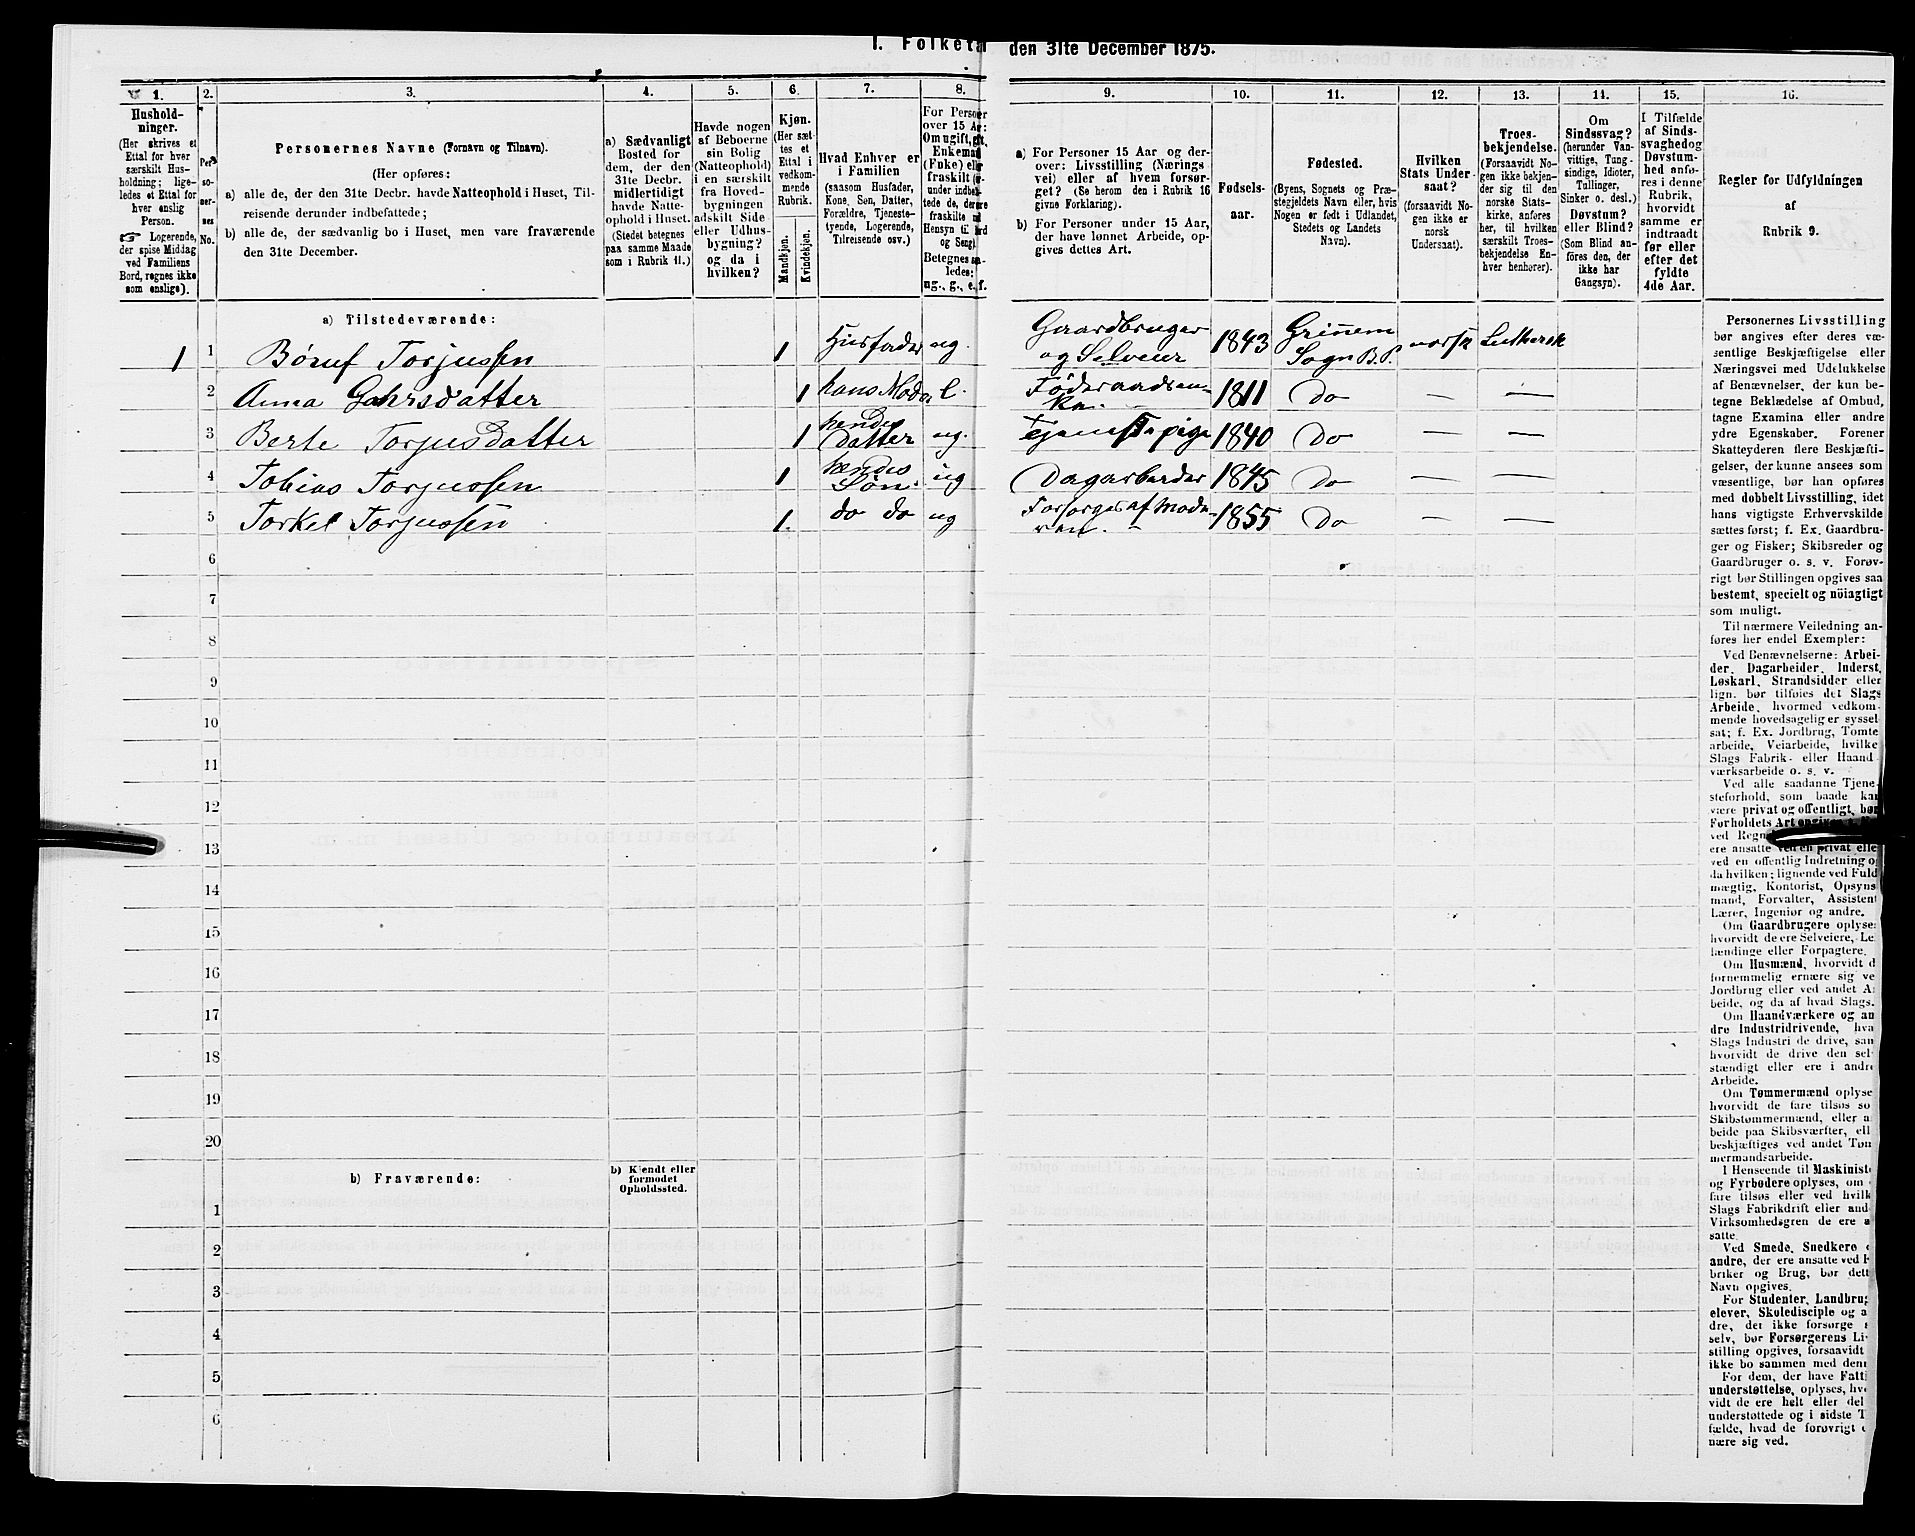 I. Folketal den 31te December 1875.
1. 2. 3. 4. 5. 6. 7. 8. 9. 10. 11. 12. 13. 14. 15. 16.
Hushold-
ninger.
(Her skrives et
Ettal for hver
særskilt Hus-
holdning; lige-
ledes et Ettal for
hver enslig
Person.
☞ Logerende,
der spise Middag
ved Familiens
Bord, regnes ikke
som enslige).
Per-
so-
ner-
nes
No.
Personernes Navne (Fornavn og Tilnavn).
(Her opføres:
a) alle de, der den 31te Decbr. havde Natteophold i Huset, Til-
reisende derunder indbefattede;
b) alle de, der sædvanlig bo i Huset, men vare fraværende
den 31te December.
a) Sædvanligt
Bosted for
dem, der den
31te Decbr.
midlertidigt
havde Natte-
ophold i Huset.
(Stedet betegnes
paa samme Maade
som i Rubrik 11.)
Havde nogen
af Beboerne
sin Bolig
(Natteophold)
i en særskilt
fra Hoved-
bygningen
adskilt Side-
eller Udhus-
bygning?
og da i
hvilken?
Kjøn.
(Her sæt-
tes et
Ettal i
vedkom-
mende
Rubrik.
Mandkjøn.
Kvindekjøn.
Hvad Enhver er
i Familien
(saasom Husfader,
Kone, Søn, Datter,
Forældre, Tjeneste-
tyende, Logerende,
Tilreisende osv.)
For Personer
over 15 Aar:
Om ugift, gift,
Enkemand
(Enke) eller
fraskilt
Betegnes saa-
ledes:
ug., g., e., f.
a) For Personer 15 Aar og der-
over: Livsstilling (Nærings-
vei) eller af hvem forsør-
get? (Se herom den i Rubrik 16
givne Forklaring).
b) For Personer under 15 Aar,
der have lønnet Arbeide, op-
gives dettes Art.
Fødsels-
aar.
Fødested.
(Byens, Sognets og Præ-
stegjeldets Navn eller, hvis
Nogen er født i Udlandet,
Stedets og Landets
Navn).
Hvilken
Stats Under-
saat?
(forsaavidt No-
gen ikke er
norsk
Undersaat).
Troes-
bekjendelse.
(Forsaavidt No-
gen ikke bekjen-
der sig til den
norske Stats-
kirke, anføres
her, til hvilken
særskilt Troes-
bekjendelse En-
hver henhører).
Om
Sindssvag?
(herunder Van-
vittige, Tung-
sindige, Idioter,
Tullinger,
Sinker o. desl.)
Døvstum?
eller Blind?
(Som Blind an-
føres den, der
ikke har
Gangsyn).
I Tilfælde
af Sinds-
svaghed og
Døvstum-
hed anfø-
res i denne
Rubrik,
hvorvidt
samme er
indtraadt
før eller
efter det
fyldte
4de Aar.
Regler for Udfyldningen
af
Rubrik 9.
a) Tilstedeværende:
1 1 Børuf Torjussen 1 Husfader ug. Gaardbruger og Selveier 1843 Sogn B.P. norsk Luthersk
2 Anna 1 hans Moder e. 1811 Do — —
3 Berte Torjusdatter 1 hendes Datter ug. Tjenestepige 1840 Do — —
4 Tobias Torjussen 1 hendes Søn. ug Dagarbeider 1845 Do — —
5 Torkel Torjussen 1. do do ug Forsorges af Moderen. 1855 Do — —
6
7
8
9
10
11
12
13
14
15
16
17
18
19
20
b) Fraværende:
b) Kjendt eller
formodet
Opholdssted.
1
2
3
4
5
6
Personernes Livsstilling
bør angives efter deres væ-
sentlige Beskjæftigelse eller
Næringsvei med Udelukkelse
af Benævnelser, der kun be-
tegne Beklædelse af Ombud,
tagne Examina eller andre
ydre Egenskaber. Forener
Skatteyderen flere Beskjæfti-
gelser, der kunne ansees som
væsentlige, bør han opføres
med dobbelt Livsstilling, idet
hans vigtigste Erhvervskilde
sættes først; f. Ex. Gaardbru-
ger og Fisker; Skibsreder og
Gaardbruger o. s. v. Forøv-
rigt bør Stillingen opgives saa
bestemt, specielt og nöiagtigt
som muligt.
Til nærmere Veiledning an-
føres her endel Exempler:
Ved Benævnelserne: Arbei-
der, Dagarbeider, Inderst,
Løskarl, Strandsidder eller
lign. bør tilføies det Slags
Arbeide, hvormed vedkom-
mende hovedsagelig er syssel-
sat; f. Ex. Jordbrug, Tomte-
arbeide, Veiarbeide, hvilket
Slags Fabrik- eller Haand-
værksarbeide o. s. v.
Ved alle saadanne Tjene-
steforhold, som baade kan
være privat og offentligt, bør
Forholdets Art
ved
ere ansatte ved en privat elle
ved en offentlig Indretning o
da hvilken; lignende ved Fuld
mægtig, Kontorist, Opsyns
mand, Forvalter, Assistent
Lærer, Ingeniør og andre.
Om Gaardbrugere oplyse
hvorvidt de ere Selveiere, Le
lændinge eller Forpagtere.
Om Husmænd, hvorvidt d
fornemmelig ernære sig ve
Jordbrug eller ved andet A
beide, og da af hvad Slags.
Om Haandværkere og an
dre Industridrivende, hva
Slags Industri de drive, sam
hvorvidt de drive den sel
stændigt eller ere i andre
Arbeide.
Om Tømmermænd oplyse
hvorvidt de fare tilsøs so
Skibstømmermænd, eller a
beide paa Skibsværfter, ell
beskjæftiges ved andet Tøm
mermandsarbeide.
I Henseende til Maskiniste
og Fyrbødere oplyses, om
fare tilsøs eller ved hvilk
Slags Fabrikdrift eller and
Virksomhedsgren de ere a
satte.
Ved Smede, Snedkere
andre, der ere ansatte ved F
briker og Brug, bør dett
Navn opgives.
For Studenter, Landbrug
elever, Skoledisciple og a
dre, der ikke forsørge s
selv, bør Forsørgerens Li
stilling opgives, forsaavidt
ikke bo sammen med denn
For dem, der have Fatti
understøttelse, oplyses, hv
vidt de ere helt eller del
understøttede og i sidste T
fælde, hvad de forøvrigt
nære sig ved.